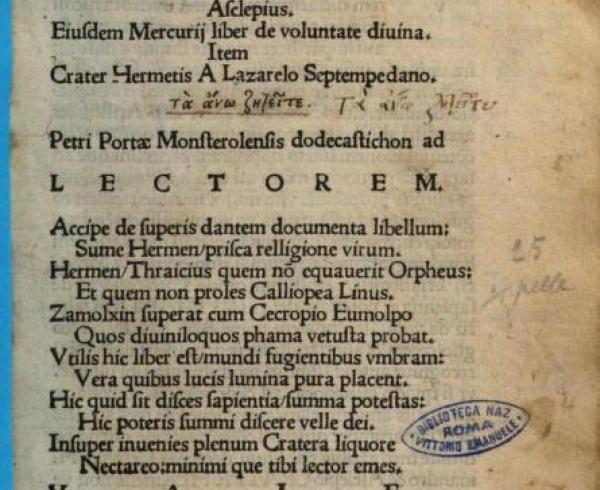 Aſclepius.
Eiuſdem Mercurij liber de voluntate diuina.
Item
Crater Hermetis A Lazarelo Septempedano.
τὰ ἄνω ζητεῖτε. τὰ ἄνω ζητεῖτε
Petri Portæ Monſterolenſis dodecaſtichon ad
LECTOREM.
Accipe de ſuperis dantem documenta libellum;
Sume Hermen/priſca relligione virum.
Hermen/Thraicius quem nō equauerit Orpheus;
Et quem non proles Calliopea Linus.
Zamolxin ſuperat cum Cecropio Eumolpo
Quos diuiniloquos phama vetuſta probat.
Vtilis hic liber eſt/mundi fugientibus vmbram:
Vera quibus lucis lumina pura placent.
Hic quid ſit diſces ſapientia/ſumma poteſtas:
Hic poteris ſummi diſcere velle dei.
Inſuper inuenies plenum Cratera liquore
Nectareo:minimi que tibi lector emes.
25
BIBLIOTECA NAZ.
ROMA
VITTORIO EMANUELE